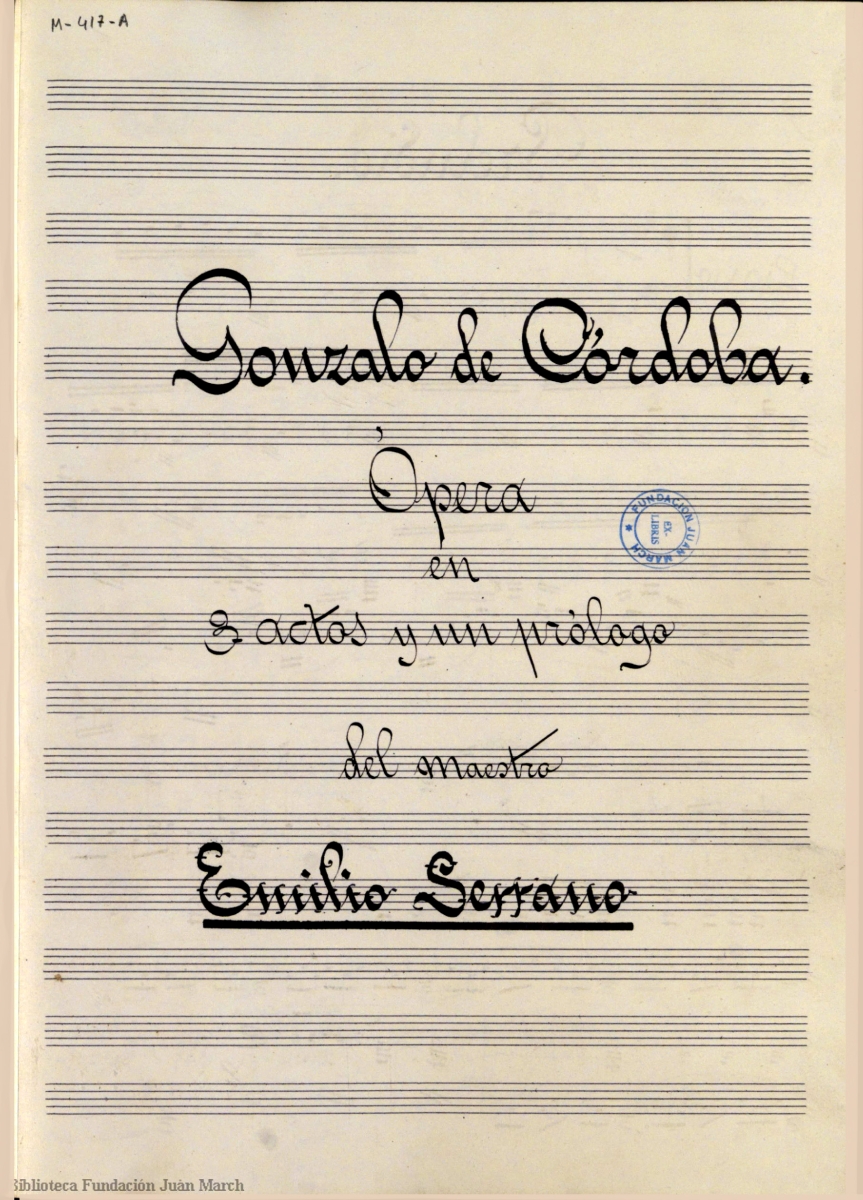 M-417-A
Gonzalo de Córdoba.
Ópera
en
3 actos y un prólogo
FUNDACIÓN JUAN MARCH
EX-
LIBRIS
del maestro
Emilio Serrano
Biblioteca Fundación Juan March